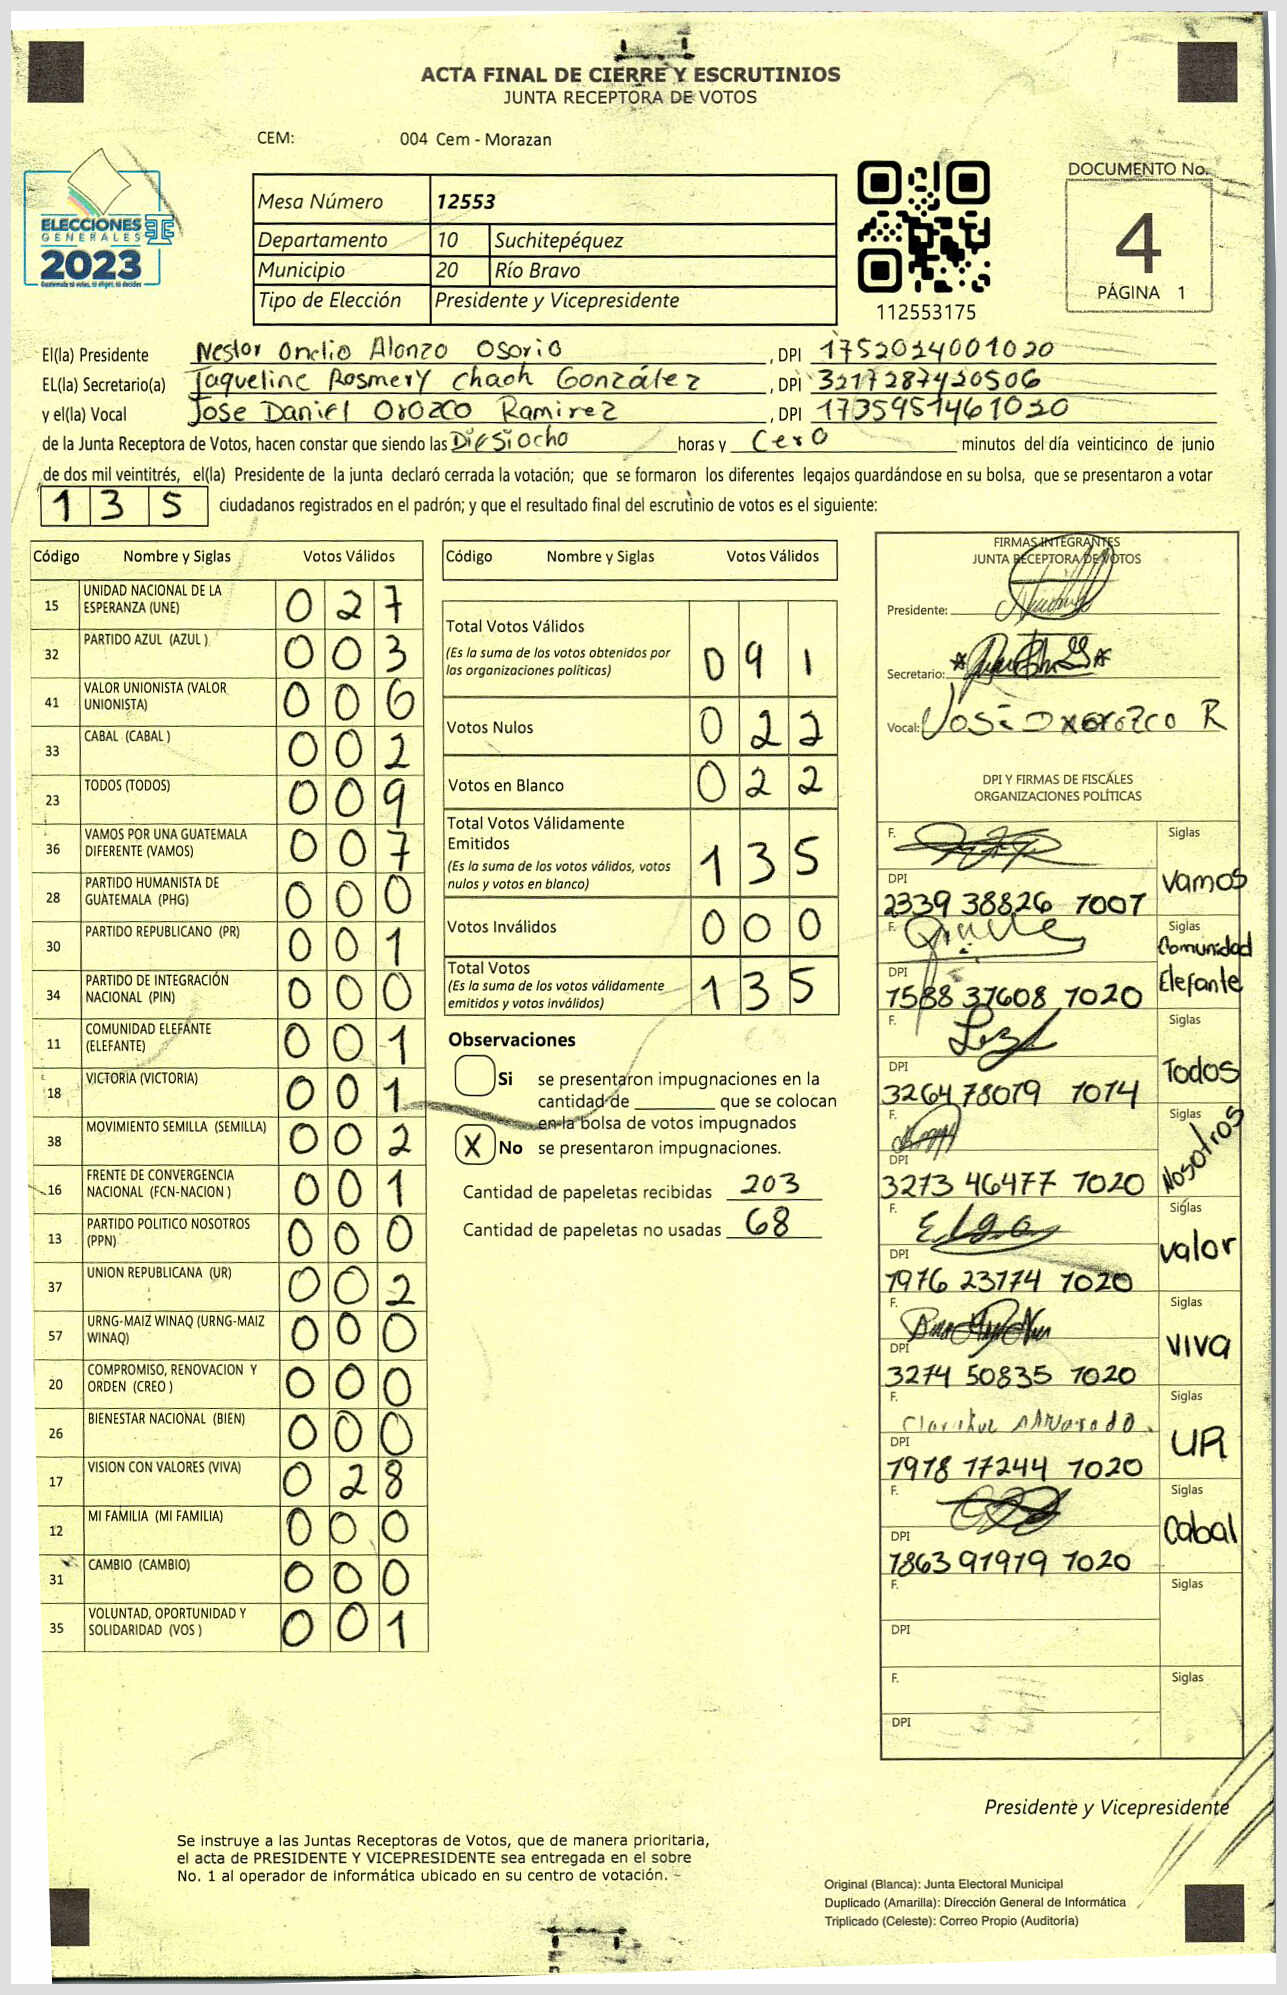 ACTA FINAL DE CIERRE Y ESCRUTINIOS
JUNTA RECEPTORA DE VOTOS
CEM: 004 Cem - Morazan
ELECCIONES
GENERALES
2023
Guatemala tú votas, tú eliges, tú decides
Mesa Número 12553
Departamento 10 Suchitepéquez
Municipio 20 Río Bravo
Tipo de Elección Presidente y Vicepresidente
112553175
DOCUMENTO No.
4
PÁGINA 1
El(la) Presidente Nestor Onelio Alonzo Osorio, DPI 1752024001020
EL(la) Secretario(a) Jaqueline Rosmery Chach González, DPI 3217287420506
y el(la) Vocal Jose Daniel Orozco Ramirez, DPI 1735951461020
de la Junta Receptora de Votos, hacen constar que siendo las Diesiocho horas y Cero minutos del día veinticinco de junio
de dos mil veintitrés, el(la) Presidente de la junta declaró cerrada la votación; que se formaron los diferentes legajos guardándose en su bolsa, que se presentaron a votar
135 ciudadanos registrados en el padrón; y que el resultado final del escrutinio de votos es el siguiente:
Código Nombre y Siglas Votos Válidos
15 UNIDAD NACIONAL DE LA ESPERANZA (UNE) 027
32 PARTIDO AZUL (AZUL ) 003
41 VALOR UNIONISTA (VALOR UNIONISTA) 006
33 CABAL (CABAL ) 002
23 TODOS (TODOS) 009
36 VAMOS POR UNA GUATEMALA DIFERENTE (VAMOS) 007
28 PARTIDO HUMANISTA DE GUATEMALA (PHG) 000
30 PARTIDO REPUBLICANO (PR) 001
34 PARTIDO DE INTEGRACIÓN NACIONAL (PIN) 000
11 COMUNIDAD ELEFANTE (ELEFANTE) 001
18 VICTORIA (VICTORIA) 001
38 MOVIMIENTO SEMILLA (SEMILLA) 002
16 FRENTE DE CONVERGENCIA NACIONAL (FCN-NACION ) 001
13 PARTIDO POLITICO NOSOTROS (PPN) 000
37 UNION REPUBLICANA (UR) 002
57 URNG-MAIZ WINAQ (URNG-MAIZ WINAQ) 000
20 COMPROMISO, RENOVACION Y ORDEN (CREO ) 000
26 BIENESTAR NACIONAL (BIEN) 000
17 VISION CON VALORES (VIVA) 028
12 MI FAMILIA (MI FAMILIA) 000
31 CAMBIO (CAMBIO) 000
35 VOLUNTAD, OPORTUNIDAD Y SOLIDARIDAD (VOS ) 001
Código Nombre y Siglas Votos Válidos
Total Votos Válidos 091
(Es la suma de los votos obtenidos por
las organizaciones políticas)
Votos Nulos 022
Votos en Blanco 022
Total Votos Válidamente
Emitidos 135
(Es la suma de los votos válidos, votos
nulos y votos en blanco)
Votos Inválidos 000
Total Votos 135
(Es la suma de los votos válidamente
emitidos y votos inválidos)
Observaciones
Si se presentaron impugnaciones en la
cantidad de ________ que se colocan
en la bolsa de votos impugnados
X No se presentaron impugnaciones.
Cantidad de papeletas recibidas 203
Cantidad de papeletas no usadas 68
FIRMAS INTEGRANTES
JUNTA RECEPTORA DE VOTOS
Presidente:
Secretario:
Vocal: José D Orozco R
DPI Y FIRMAS DE FISCALES
ORGANIZACIONES POLÍTICAS
F. Siglas
DPI Vamos
2339 38826 1007
F. Siglas
Comunidad
DPI Elefante
1588 37608 1020
F. Siglas
DPI Todos
3264 78079 1014
F. Siglas
DPI Nosotros
3273 46477 1020
F. Siglas
DPI Valor
1976 23774 1020
F. Siglas
DPI VIVA
3274 50835 1020
F. Alvarado. Siglas
DPI UR
1978 17244 1020
F. Siglas
DPI Cabal
1863 91919 1020
F. Siglas
DPI
F. Siglas
DPI
Presidente y Vicepresidente
Se instruye a las Juntas Receptoras de Votos, que de manera prioritaria,
el acta de PRESIDENTE Y VICEPRESIDENTE sea entregada en el sobre
No. 1 al operador de informática ubicado en su centro de votación.
Original (Blanca): Junta Electoral Municipal
Duplicado (Amarilla): Dirección General de Informática
Triplicado (Celeste): Correo Propio (Auditoría)